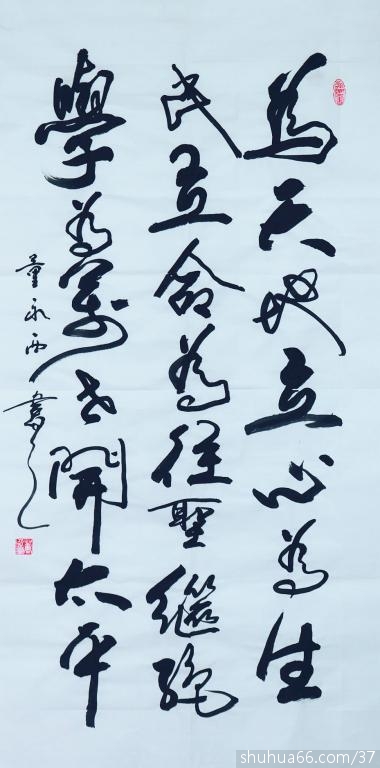 為天地立心為生
民立命為往聖繼絕
學為萬世開太平
永西書之
shuhua66.com/37